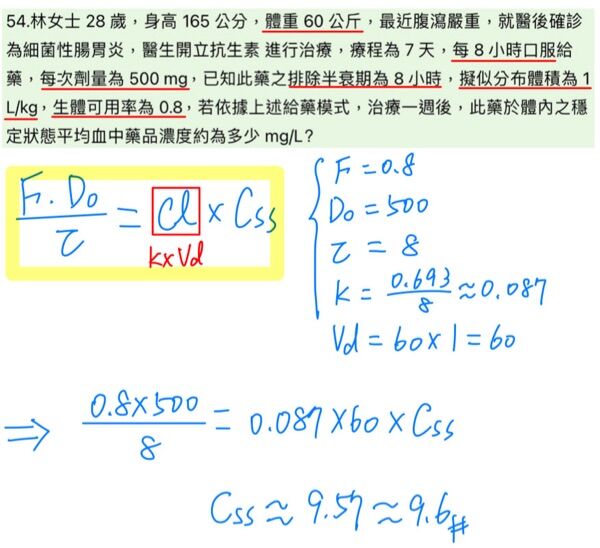 54.林女士 28 歲，身高 165 公分，體重 60 公斤，最近腹瀉嚴重，就醫後確診
為細菌性腸胃炎，醫生開立抗生素 進行治療，療程為 7 天，每 8 小時口服給
藥，每次劑量為 500 mg，已知此藥之排除半衰期為 8 小時，擬似分布體積為 1
L/kg，生體可用率為 0.8，若依據上述給藥模式，治療一週後，此藥於體內之穩
定狀態平均血中藥品濃度約為多少 mg/L？
F·D₀/τ = Cl × Css
k×Vd
F = 0.8
D₀ = 500
τ = 8
k = 0.693/8 ≈ 0.087
Vd = 60 × 1 = 60
⇒ 0.8×500/8 = 0.087 × 60 × Css
Css ≈ 9.57 ≈ 9.6#